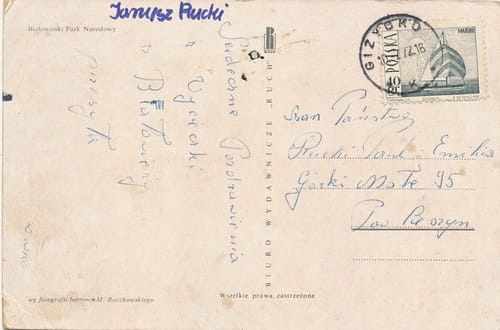 Janusz Rucki
Białowieski Park Narodowy
Serdeczne Pozdrowienia
z Wycieczki
z Białowieży
przesyła
BIURO WYDAWNICZE „RUCH”
GIZYCKO
POLSKA
40
Szan. Państwo
Rucki Paul i Emilia
Górki Małe 95
Pow Cieszyn
wg fotografii barwnej M. Raczkowskiego
Wszelkie prawa zastrzeżone